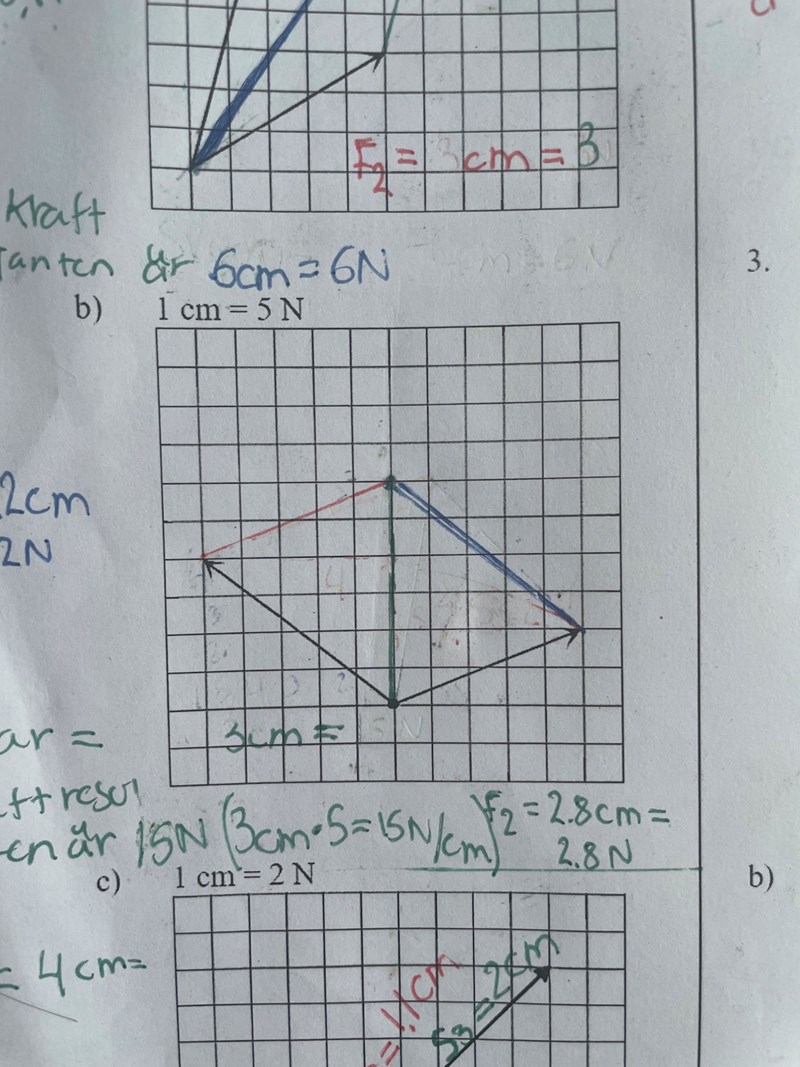 F₂ = 3 cm = 3
kraft
anten är 6cm = 6N
3.
b) 1 cm = 5 N
2cm
2N
3cm =
ar =
är 15N (3cm·5=15N/cm) F₂ = 2.8cm =
2.8 N
c) 1 cm = 2 N
b)
= 4cm=
= 1.1cm
= 2cm